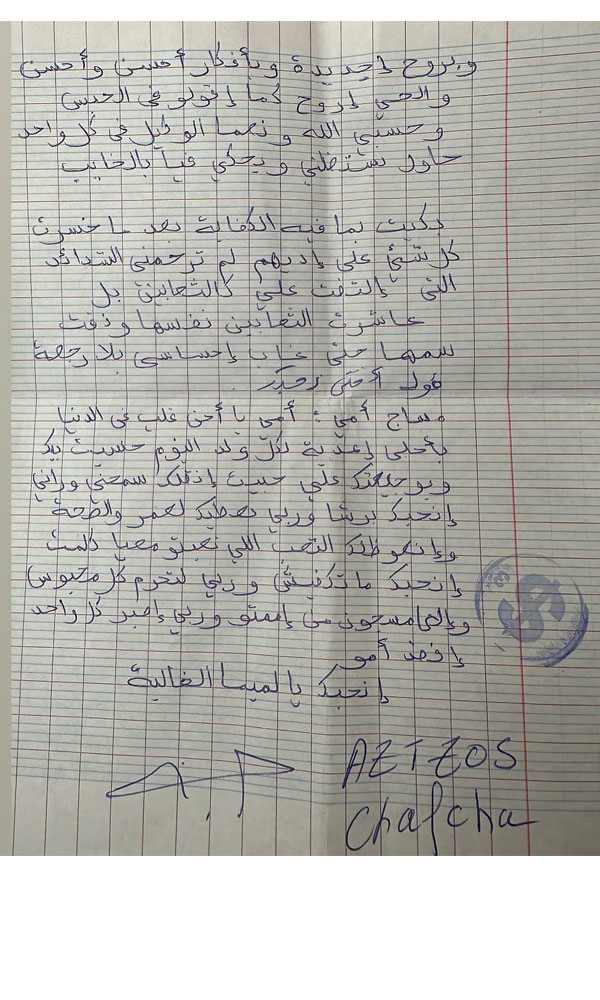 وبروح جديدة وبأفكار أحسن وأحسن
والحي إروح كما إقولو في الحبس
وحسبي الله ونعما الوكيل في كل واحد
حاول يستغلني ويحكي فيا بالخايب
بكيت بما فيه الكفاية بعد ما خسرت
كل شئ على إديهم لم ترحمني الشدائد
التي إلتفت علي كالثعابين بل
عاشرت الثعابين نفسها وذقت
سمها حتى غاب إحساسي بلا رجعة
قول أختي
مساج أمي : أمي يا أحن قلب في الدنيا
يأحلى إغنية لكل ولد اليوم حسيت بك
وبوجيعتك علي حبيت إنقلك سمحني وراني
إنحبك برشا وربي يعطيك لعمر والصحة
وإنعوظلك التعب اللي تعبتو معيا كلمت
إنحبك ما تكفيش وربي لتحرم كل محبوس
وإلا مسجون من إميمتو وربي إصبر كل واحد
إفقد أمو
إنحبك يا لميما الغالية
AZIZOS
Chafcha